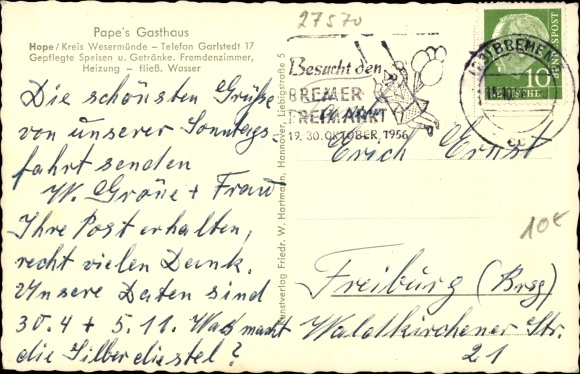 27570
Pape's Gasthaus
Hope / Kreis Wesermünde – Telefon Garlstedt 17
Gepflegte Speisen u. Getränke. Fremdenzimmer,
Heizung – fließ. Wasser
Die schönsten Grüße
von unserer Sonntags
fahrt senden
W. Gröne + Frau
Ihre Post erhalten,
recht vielen Dank.
Unsere Daten sind
30.4 + 5.11. Was macht
die Silberdistel?
Kunstverlag Friedr. W. Hartmann, Hannover, Liebigstraße 5
Besucht den
BREMER
FREIMARKT
19.-30. OKTOBER, 1956
(23) BREMEN
DEUTSCHE BUNDESPOST
10
Erich Ernst
10€
Freiburg (Brsg)
Waldkirchener Str.
21